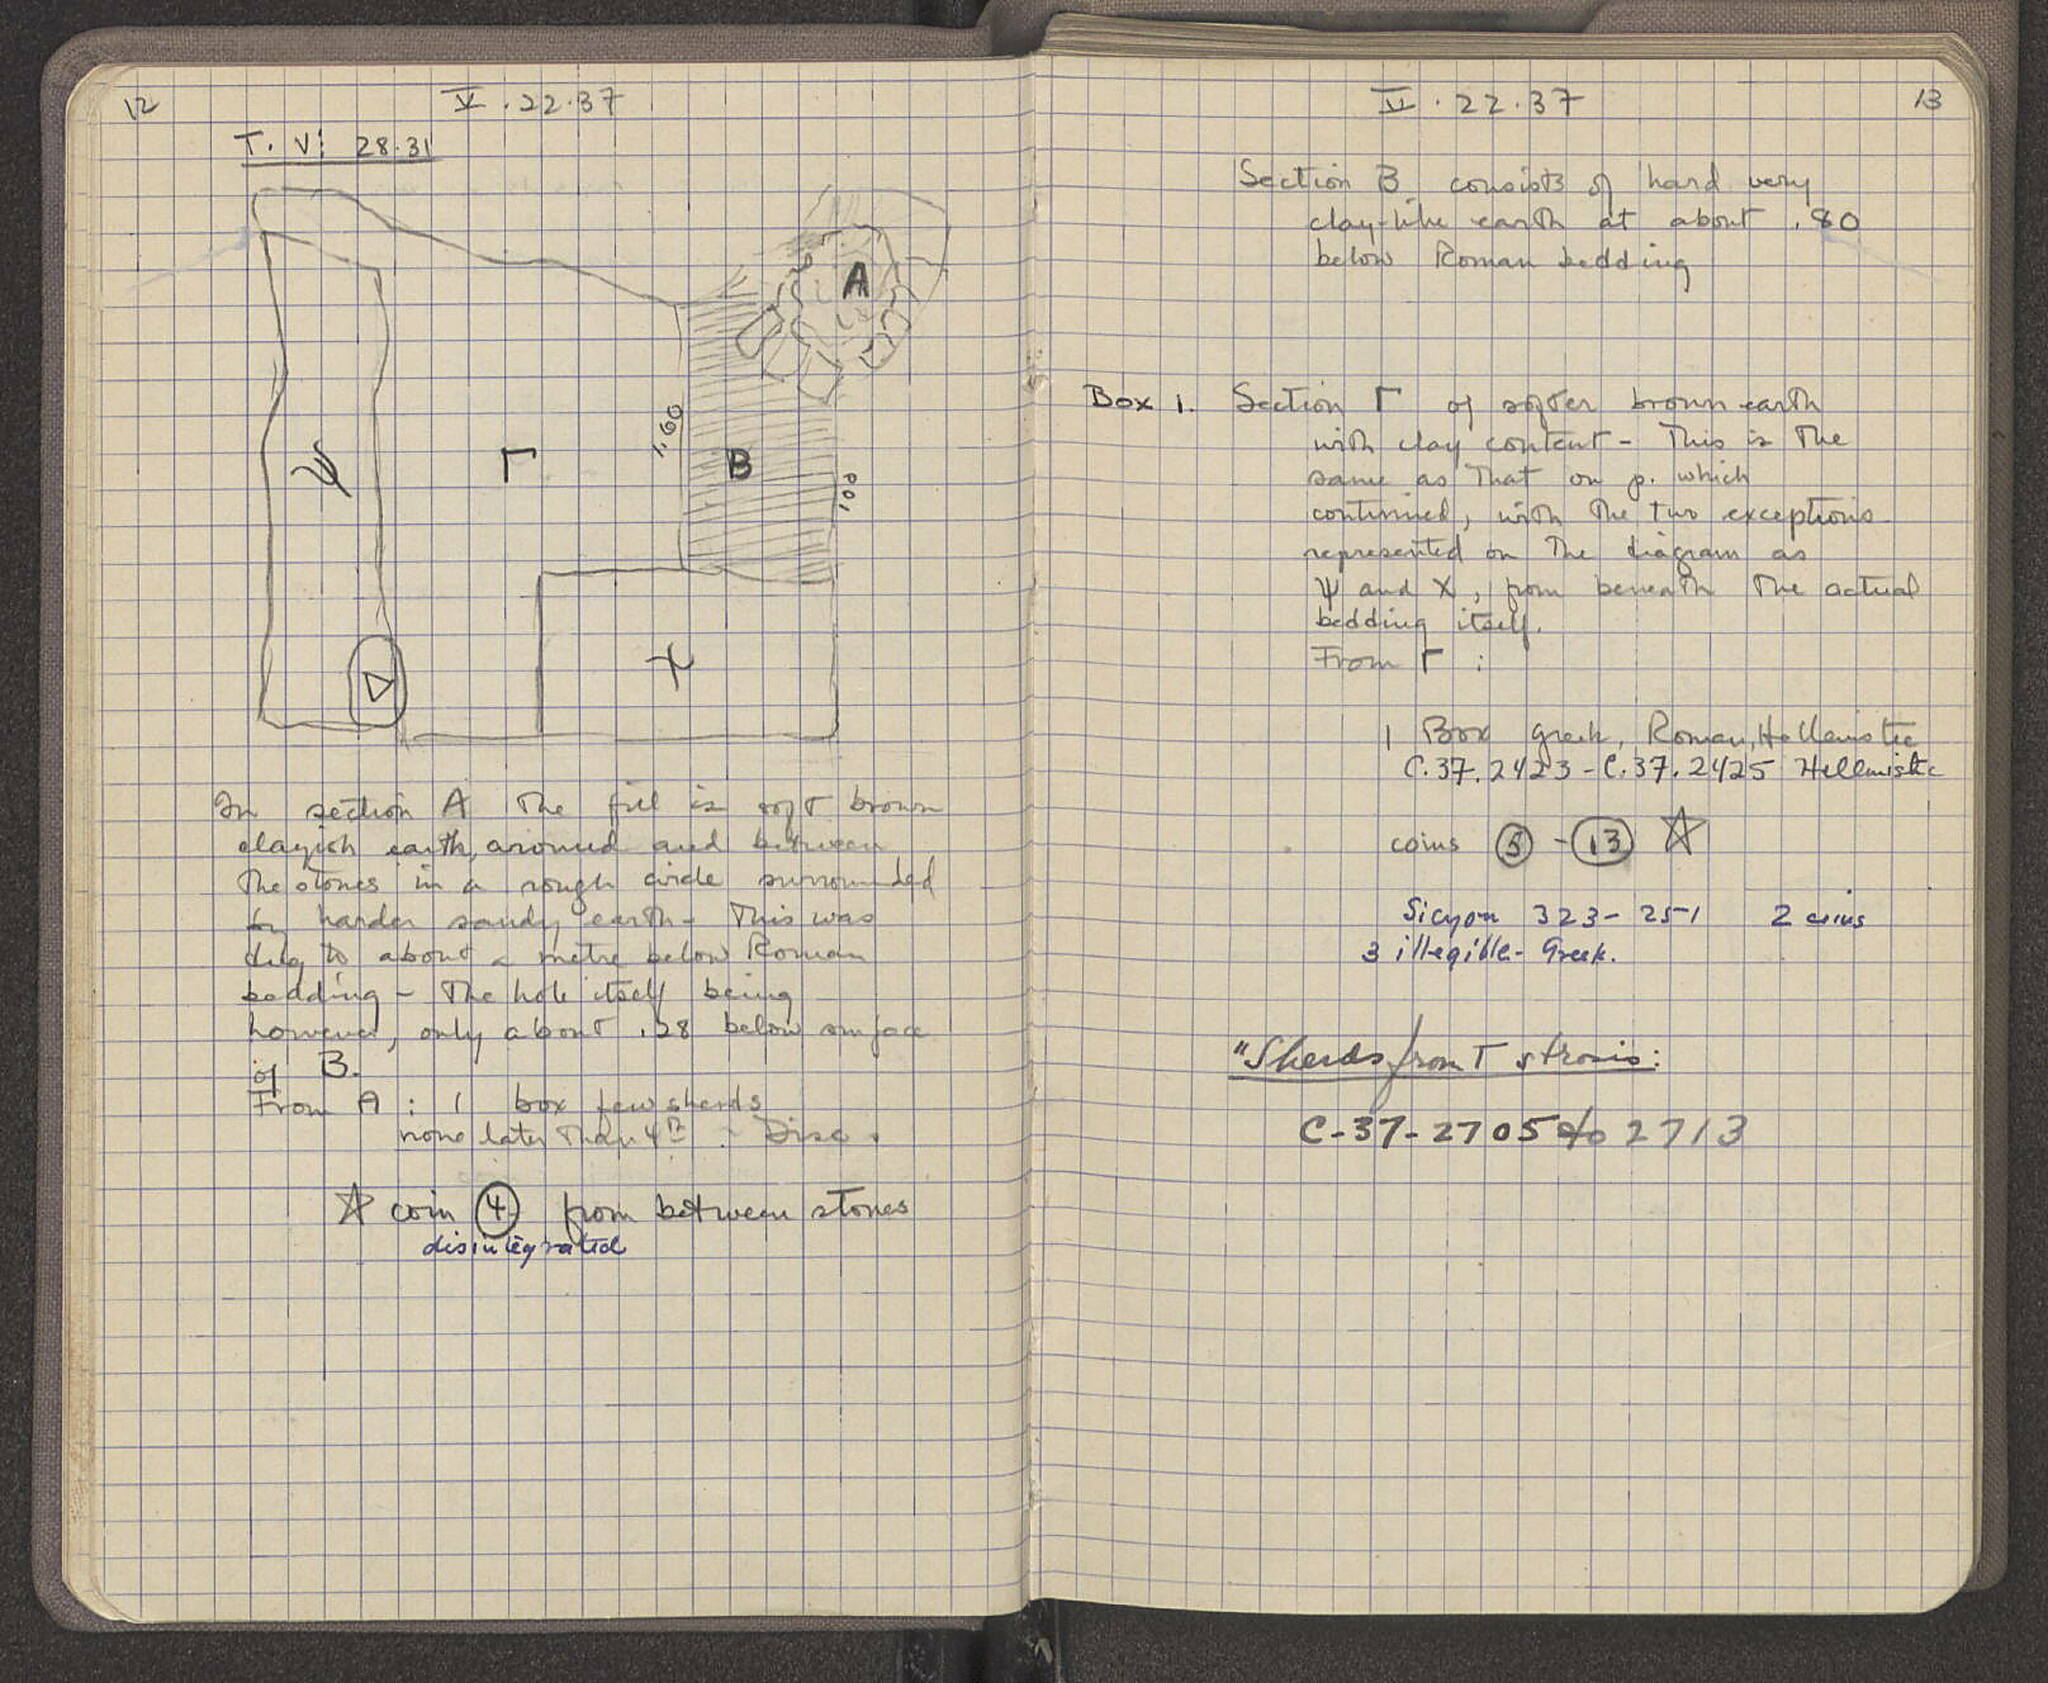 12
V . 22 . 37
T. V: 28.31
A
B
Γ
Ψ
X
Δ
In section A the fill is soft brown
clayish earth, around and between
the stones in a rough circle surrounded
by harder sandy earth - This was
dug to about a metre below Roman
bedding - The hole itself being
however, only about .28 below surface
of B.
From A : 1 box few sherds
none later than 4th - Disc.
☆ coin ④ from between stones
disintegrated
V . 22 . 37
13
Section B consists of hard very
clay-like earth at about .80
below Roman bedding
Box 1. Section Γ of softer brown earth
with clay content - This is the
same as that on p. which
continued, with the two exceptions
represented on the diagram as
Ψ and X, from beneath the actual
bedding itself.
From Γ :
1 Box Greek, Roman, Hellenistic
C.37.2423 - C.37.2425 Hellenistic
coins ⑤ - ⑬ ☆
Sicyon 323-251 2 coins
3 illegible - Greek.
"Sherds from Γ strosis:
C-37-2705 to 2713